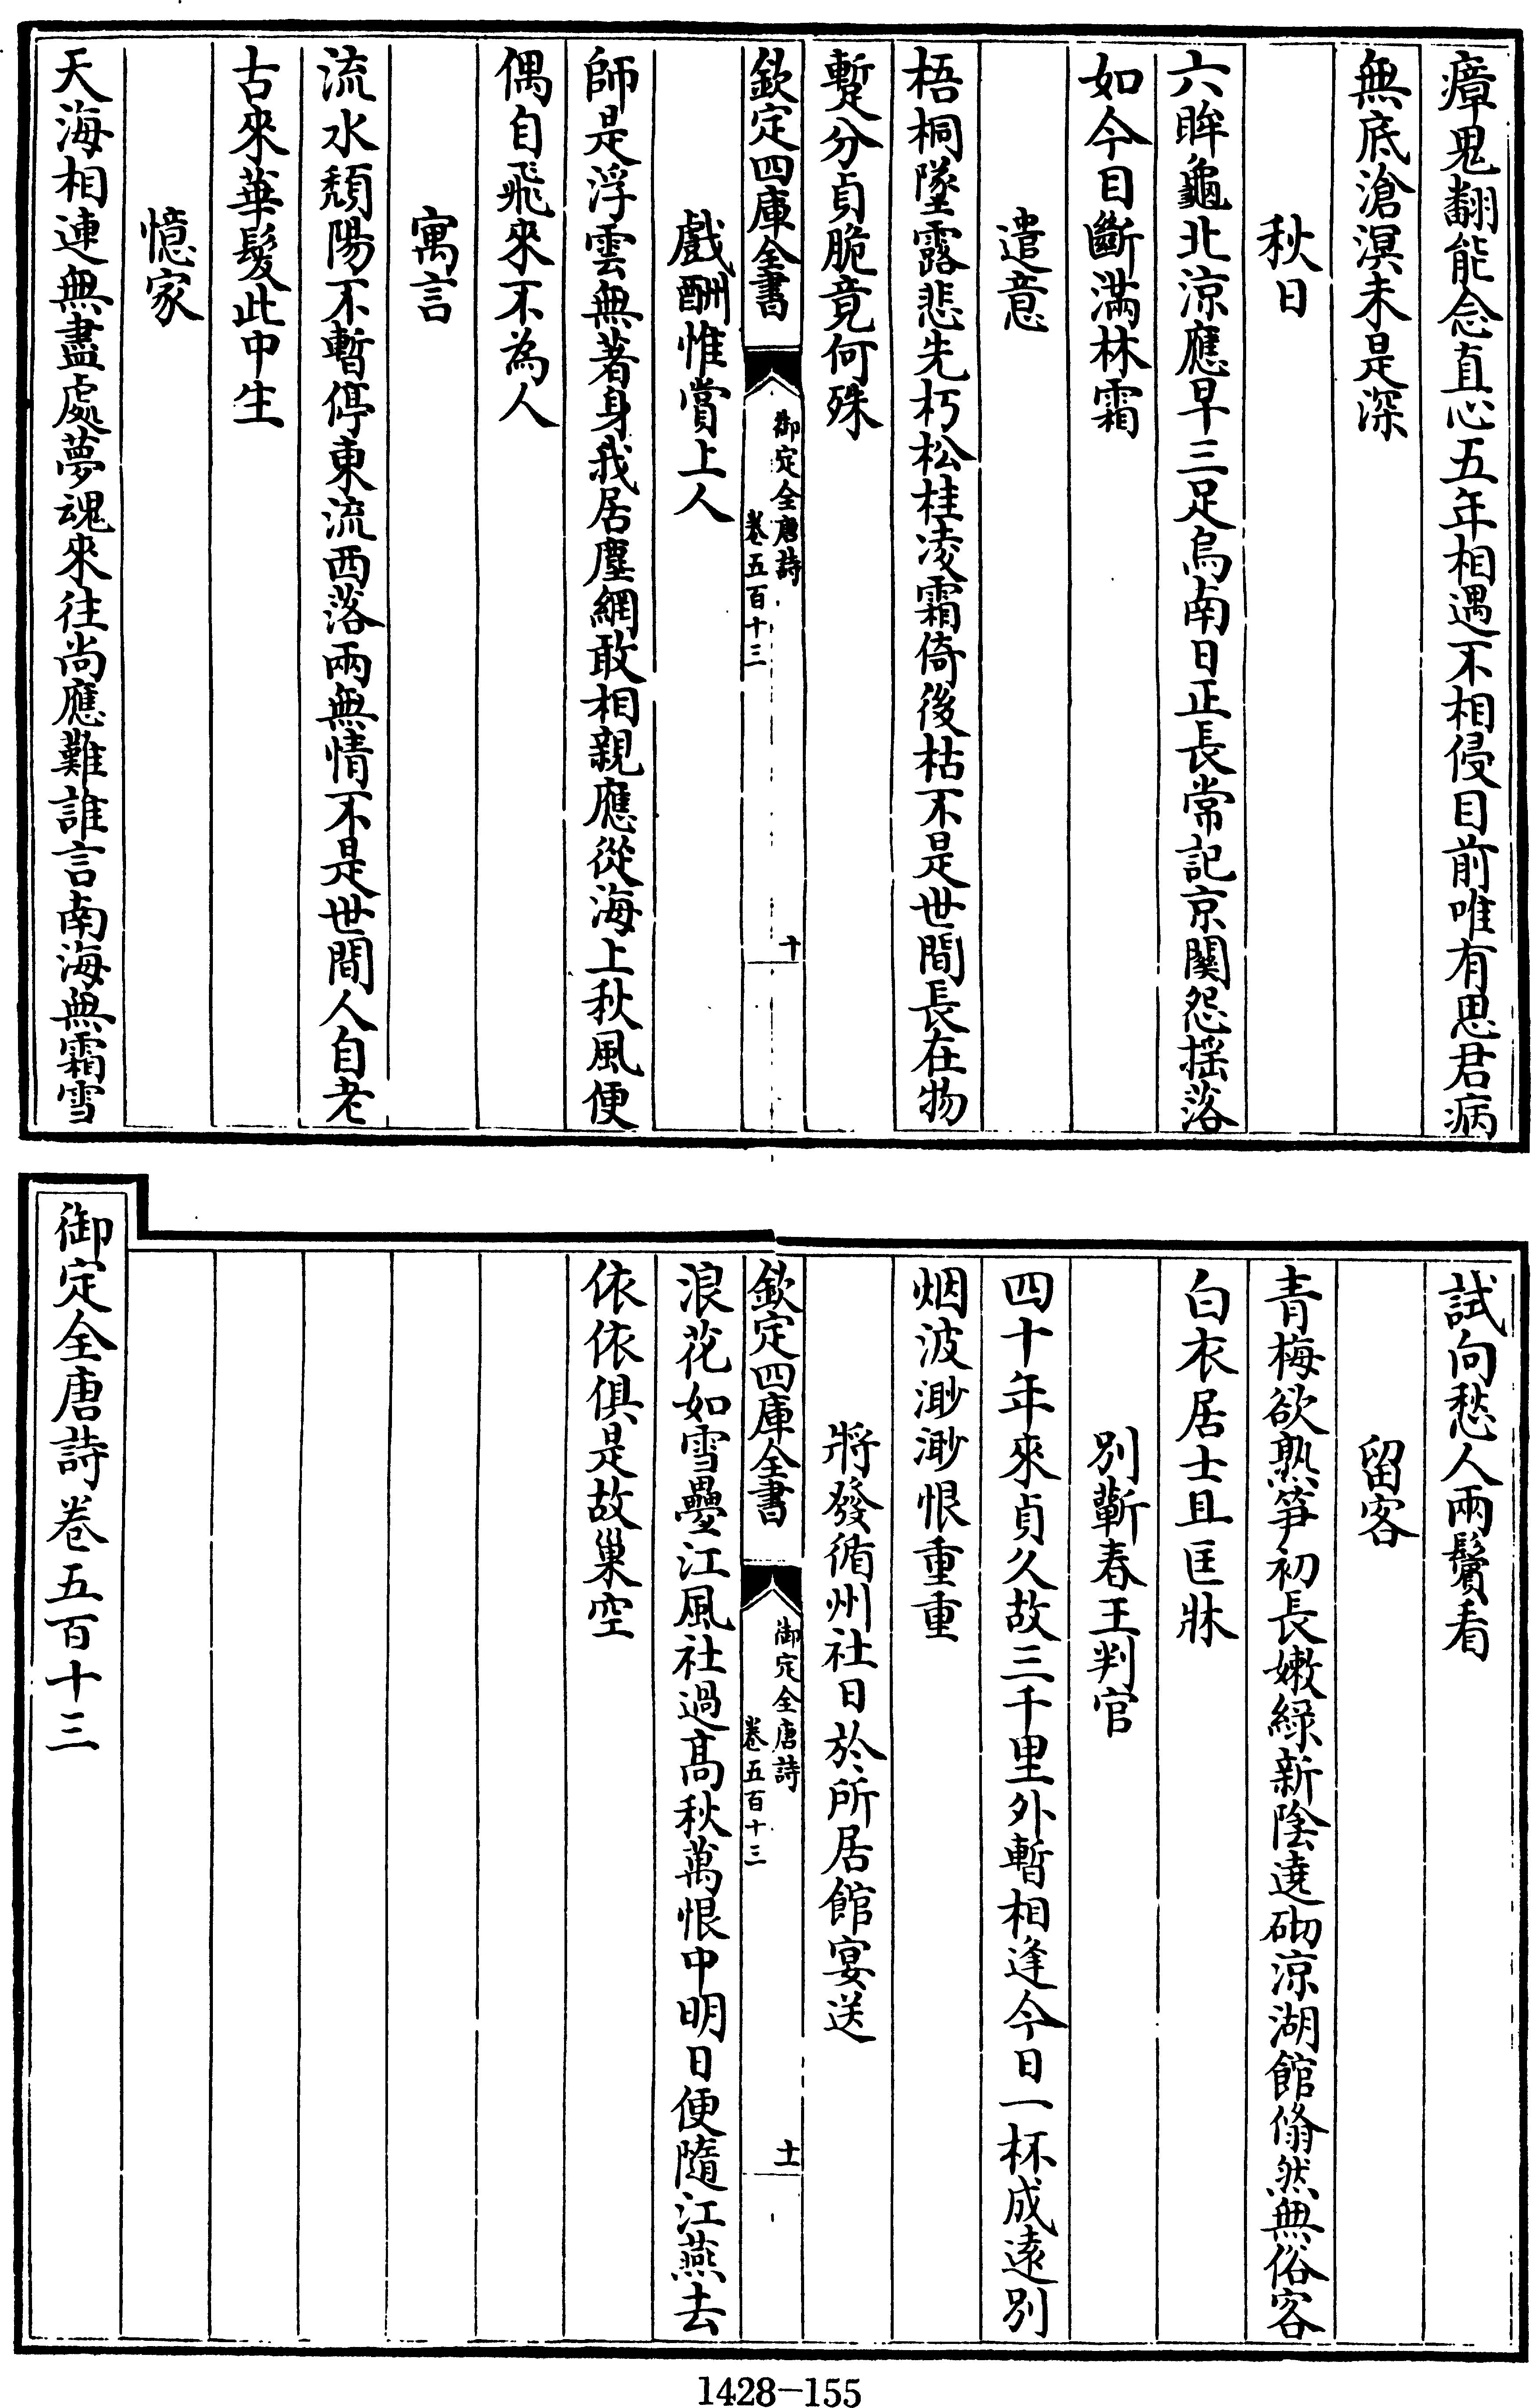 瘴鬼翻能念直心五年相遇不相侵目前唯有思君病
無底滄溟未是深
秋日
六眸龜北涼應早三足烏南日正長常記京闗怨揺落
如今目斷滿林霜
遣意
梧桐墜露悲先朽松桂凌霜倚後枯不是世間長在物
蹔分貞脆竟何殊
欽定四庫全書
御定全唐詩
卷五百十三
十
戲酬惟賞上人
師是浮雲無著身我居塵網敢相親應從海上秋風便
偶自飛來不為人
寓言
流水頽陽不暫停東流西落兩無情不是世間人自老
古來華髮此中生
憶家
天海相連無盡處夢魂來往尚應難誰言南海無霜雪
試向愁人兩鬢看
留客
青梅欲熟筍初長嫩緑新陰遶砌涼湖館翛然無俗客
白衣居士且匡牀
別蘄春王判官
四十年來貞久故三千里外暫相逢今日一杯成逺別
烟波渺渺恨重重
將發循州社日於所居館宴送
欽定四庫全書
御定全唐詩
卷五百十三
十一
浪花如雪疊江風社過髙秋萬恨中明日便隨江燕去
依依俱是故巢空
御定全唐詩卷五百十三
1428-155